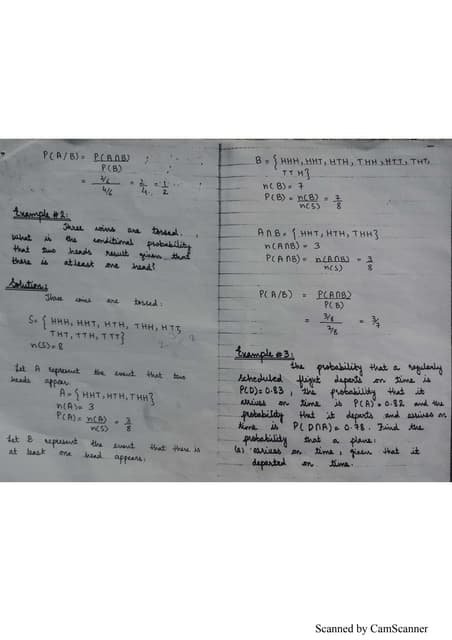 P(A/B) = P(A∩B)
P(B)
= 2/6 = 2 = 1
4/6 4 2
Example #2:
Three coins are tossed.
what is the conditional probability
that two heads result given that
there is atleast one head?
Solution:
Three coins are tossed:
S = { HHH, HHT, HTH, THH, HTT,
THT, TTH, TTT}
n(S) = 8
Let A represent the event that two
heads appear.
A = { HHT, HTH, THH}
n(A) = 3
P(A) = n(A) = 3
n(S) 8
Let B represent the event that there is
at least one head appears.
B = { HHH, HHT, HTH, THH, HTT, THT,
TTH}
n(B) = 7
P(B) = n(B) = 7
n(S) 8
A∩B = { HHT, HTH, THH}
n(A∩B) = 3
P(A∩B) = n(A∩B) = 3
n(S) 8
P(A/B) = P(A∩B)
P(B)
= 3/8 = 3/7
7/8
Example #3:
the probability that a regularly
scheduled flight departs on time is
P(D) = 0.83, the probability that it
arrives on time is P(A) = 0.82 and the
probability that it departs and arrives on
time is P(D∩A) = 0.78. Find the
probability that a plane:
(a) arrives on time, given that it
departed on time.
Scanned by CamScanner